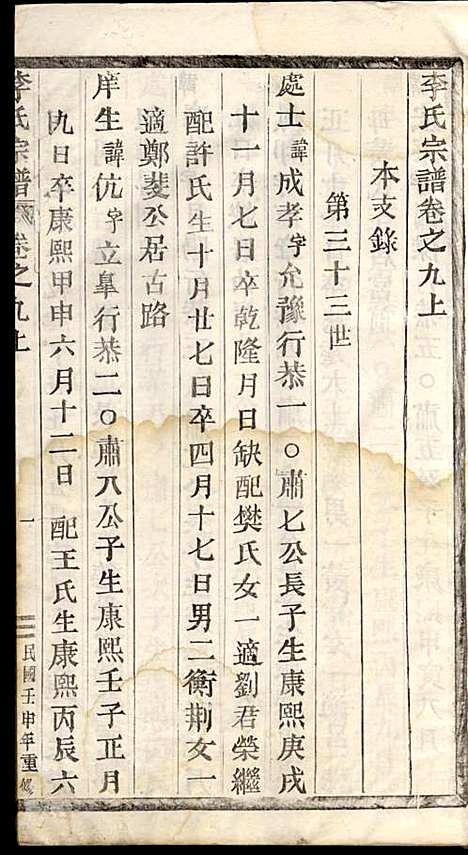 李氏宗譜卷之九上
本支錄
第三十三世
處士諱成孝字允豫行恭一〇肅七公長子生康熙庚戌
十一月七日卒乾隆月日缺配樊氏女一適劉君榮繼
配許氏生十月廿七日卒四月十七日男二衡荆女一
適鄭斐公居古路
庠生諱伉字立臯行恭二〇肅八公子生康熙壬子正月
九日卒康熙甲申六月十二日 配王氏生康熙丙辰六
李氏宗譜 卷之九上 一 民國壬申年重修